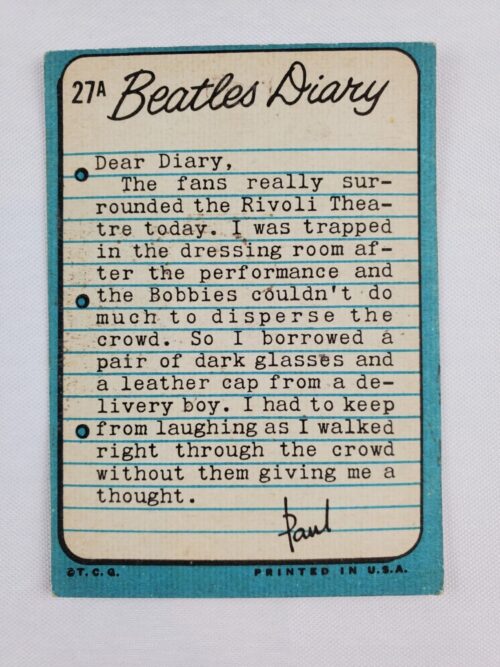 27A Beatles Diary
Dear Diary,
The fans really sur-
rounded the Rivoli Thea-
tre today. I was trapped
in the dressing room af-
ter the performance and
the Bobbies couldn't do
much to disperse the
crowd. So I borrowed a
pair of dark glasses and
a leather cap from a de-
livery boy. I had to keep
from laughing as I walked
right through the crowd
without them giving me a
thought.
Paul
©T.C.G. PRINTED IN U.S.A.